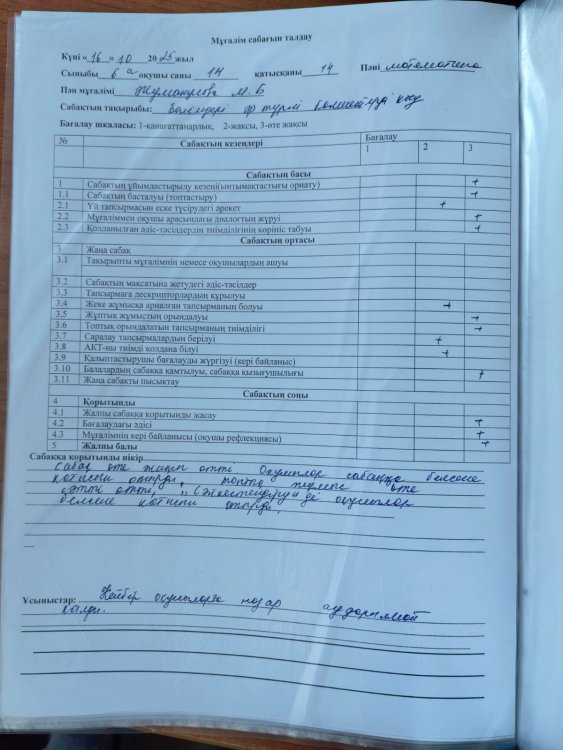 Мұғалім сабағын талдау
Күні « 16 » 10 20 25 жыл
Сыныбы 6 а оқушы саны 14 қатысқаны 14 Пәні математика
Пән мұғалімі М. Б
Сабақтың тақырыбы: әр түрлі
Бағалау шкаласы: 1-қанағаттанарлық, 2-жақсы, 3-өте жақсы
№ Сабақтың кезеңдері Бағалау
1 2 3
Сабақтың басы
1 Сабақтың ұйымдастырылу кезеңі(ынтымақтастығы орнату) +
1.1 Сабақтың бастадуы (топтастыру) +
2.1 Үй тапсырмасын еске түсірудегі әрекет +
2.2 Мұғаліммен оқушы арасындағы диалогтың жүруі +
2.3 Қолданылған әдіс-тәсілдердің тиімділігінің көрініс табуы +
Сабақтың ортасы
3 Жаңа сабақ
3.1 Тақырыпты мұғалімнің немесе оқушылардың ашуы
3.2 Сабақтың мақсатына жетудегі әдіс-тәсілдер
3.3 Тапсырмаға дескрипторлардың құрылуы
3.4 Жеке жұмысқа арналған тапсырманың болуы +
3.5 Жұптық жұмыстың орындалуы +
3.6 Топтық орындалатын тапсырманың тиімділігі +
3.7 Саралау тапсырмалардың берілуі +
3.8 АКТ-ны тиімді қолдана білуі +
3.9 Қалыптастырушы бағалауды жүргізуі (кері байланыс)
3.10 Балалардың сабаққа қамтылуы, сабаққа қызығушылығы +
3.11 Жаңа сабақты пысықтау
Сабақтың соңы
4 Қорытынды
4.1 Жалпы сабаққа қорытынды жасау +
4.2 Бағалаудағы әдісі +
4.3 Мұғалімнің кері байланысы (оқушы рефлекциясы) +
5 Жалпы балы +
Сабаққа қорытынды пікір
Сабақ өте жақсы өтті. Оқушылар сабаққа белсене
қатысып отырды, топтық жұмыс өте
сәтті өтті, „Сәйкестендіру" де оқушылар
белсене қатысып отырды.
Ұсыныстар: Кейбір оқушыларға назар аударылмай
қалды.